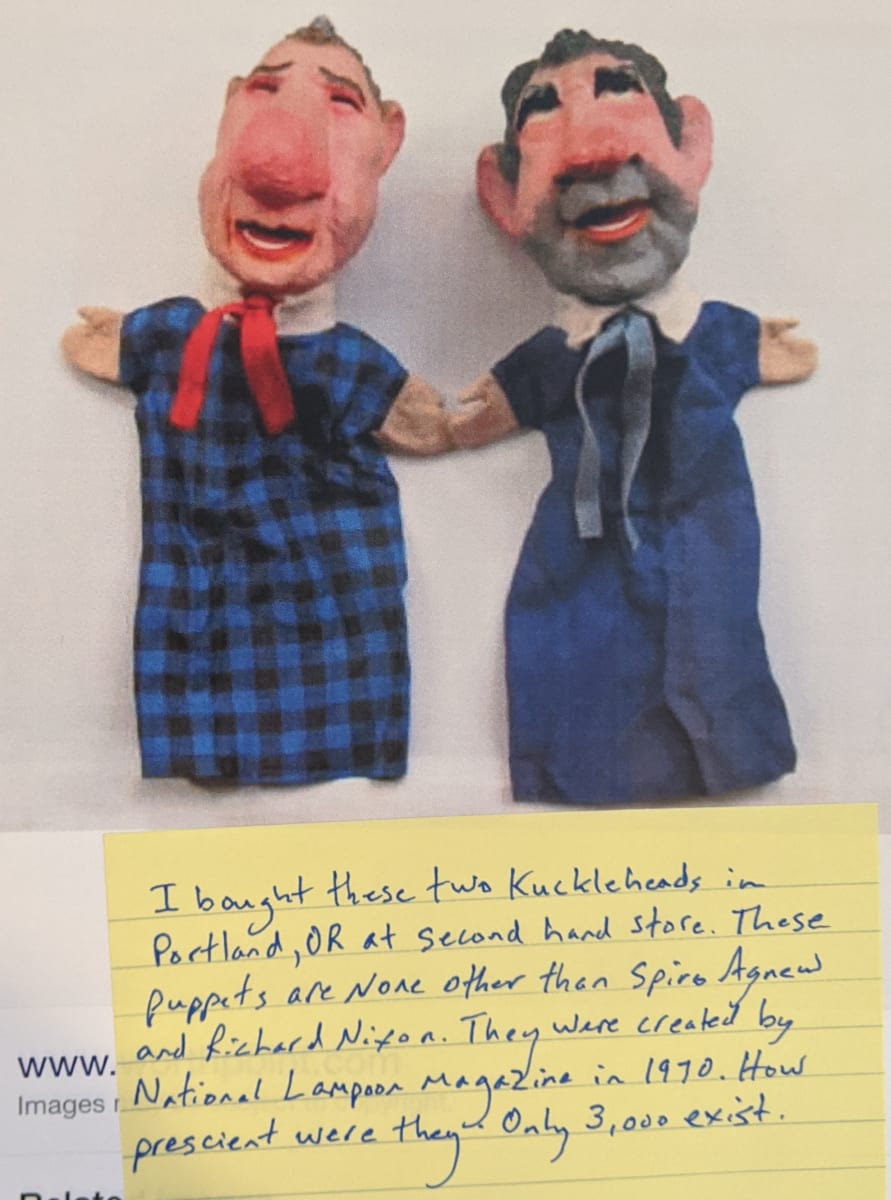 I bought these two Kuckleheads in
Portland, OR at second hand store. These
puppets are None other than Spiro Agnew
and Richard Nixon. They were created by
National Lampoon Magazine in 1970. How
prescient were they. Only 3,000 exist.
www.
Images